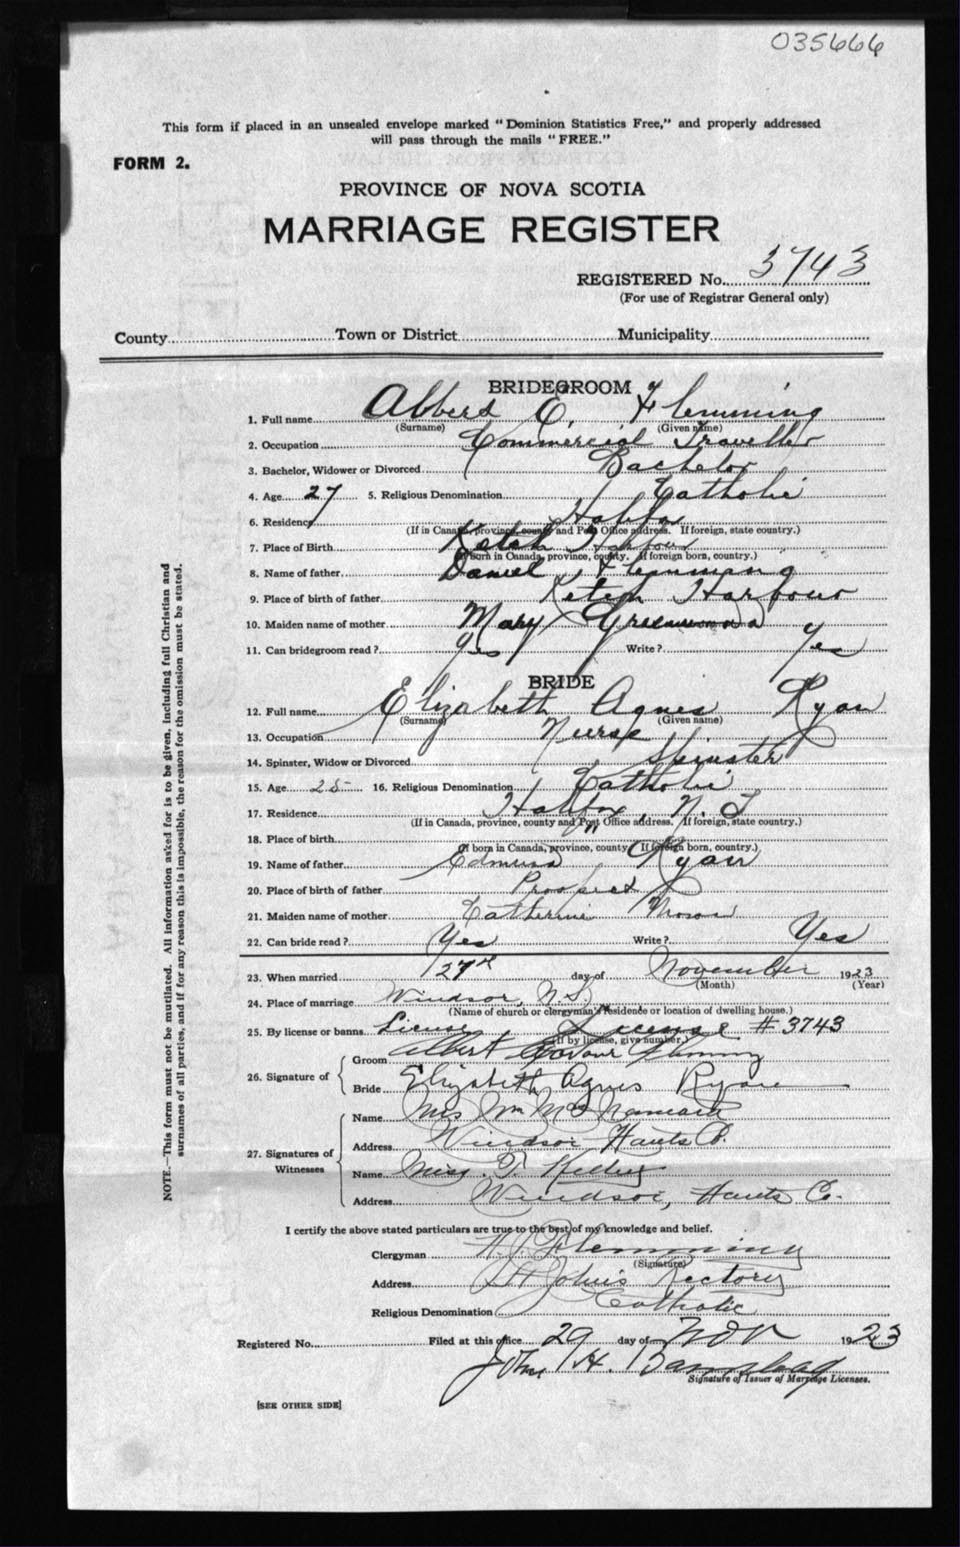 035666
This form if placed in an unsealed envelope marked "Dominion Statistics Free," and properly addressed
will pass through the mails "FREE."
FORM 2.
PROVINCE OF NOVA SCOTIA
MARRIAGE REGISTER
REGISTERED No. 3743
(For use of Registrar General only)
County Town or District Municipality
BRIDEGROOM
1. Full name C. Flemming
(Surname) (Given name)
2. Occupation Commercial Traveller
3. Bachelor, Widower or Divorced Bachelor
4. Age 27 5. Religious Denomination Catholic
6. Residence Halifax
(If in Canada, province, county and Post Office address. If foreign, state country.)
7. Place of Birth Ketch Harbour
(If born in Canada, province, county. If foreign born, country.)
8. Name of father Daniel Flemming
9. Place of birth of father Ketch Harbour
10. Maiden name of mother Mary
11. Can bridegroom read? Yes Write? Yes
BRIDE
12. Full name Elizabeth Agnes Ryan
(Surname) (Given name)
13. Occupation Nurse
14. Spinster, Widow or Divorced Spinster
15. Age 25 16. Religious Denomination Catholic
17. Residence Halifax, N. S
(If in Canada, province, county and Post Office address. If foreign, state country.)
18. Place of birth
(If born in Canada, province, county. If foreign born, country.)
19. Name of father Edmund Ryan
20. Place of birth of father Prospect
21. Maiden name of mother Catherine
22. Can bride read? Yes Write? Yes
23. When married 27th day of November 1923
(Month) (Year)
24. Place of marriage Windsor, N.S.
(Name of church or clergyman's residence or location of dwelling house.)
25. By license or banns License License # 3743
(If by license, give number.)
26. Signature of
Groom Albert Flemming
Bride Elizabeth Agnes Ryan
27. Signatures of Witnesses
Name Mrs Wm McNamara
Address Windsor Hants Co.
Name Miss
Address Windsor, Hants Co.
I certify the above stated particulars are true to the best of my knowledge and belief.
Clergyman Flemming
(Signature)
Address St John's Rectory
Religious Denomination Catholic
Registered No. Filed at this office 29 day of Nov 1923
John H. Barnstead
Signature of Issuer of Marriage Licenses.
[SEE OTHER SIDE]
NOTE.—This form must not be mutilated. All information asked for is to be given, including full Christian and
surnames of all parties, and if for any reason this is impossible, the reason for the omission must be stated.